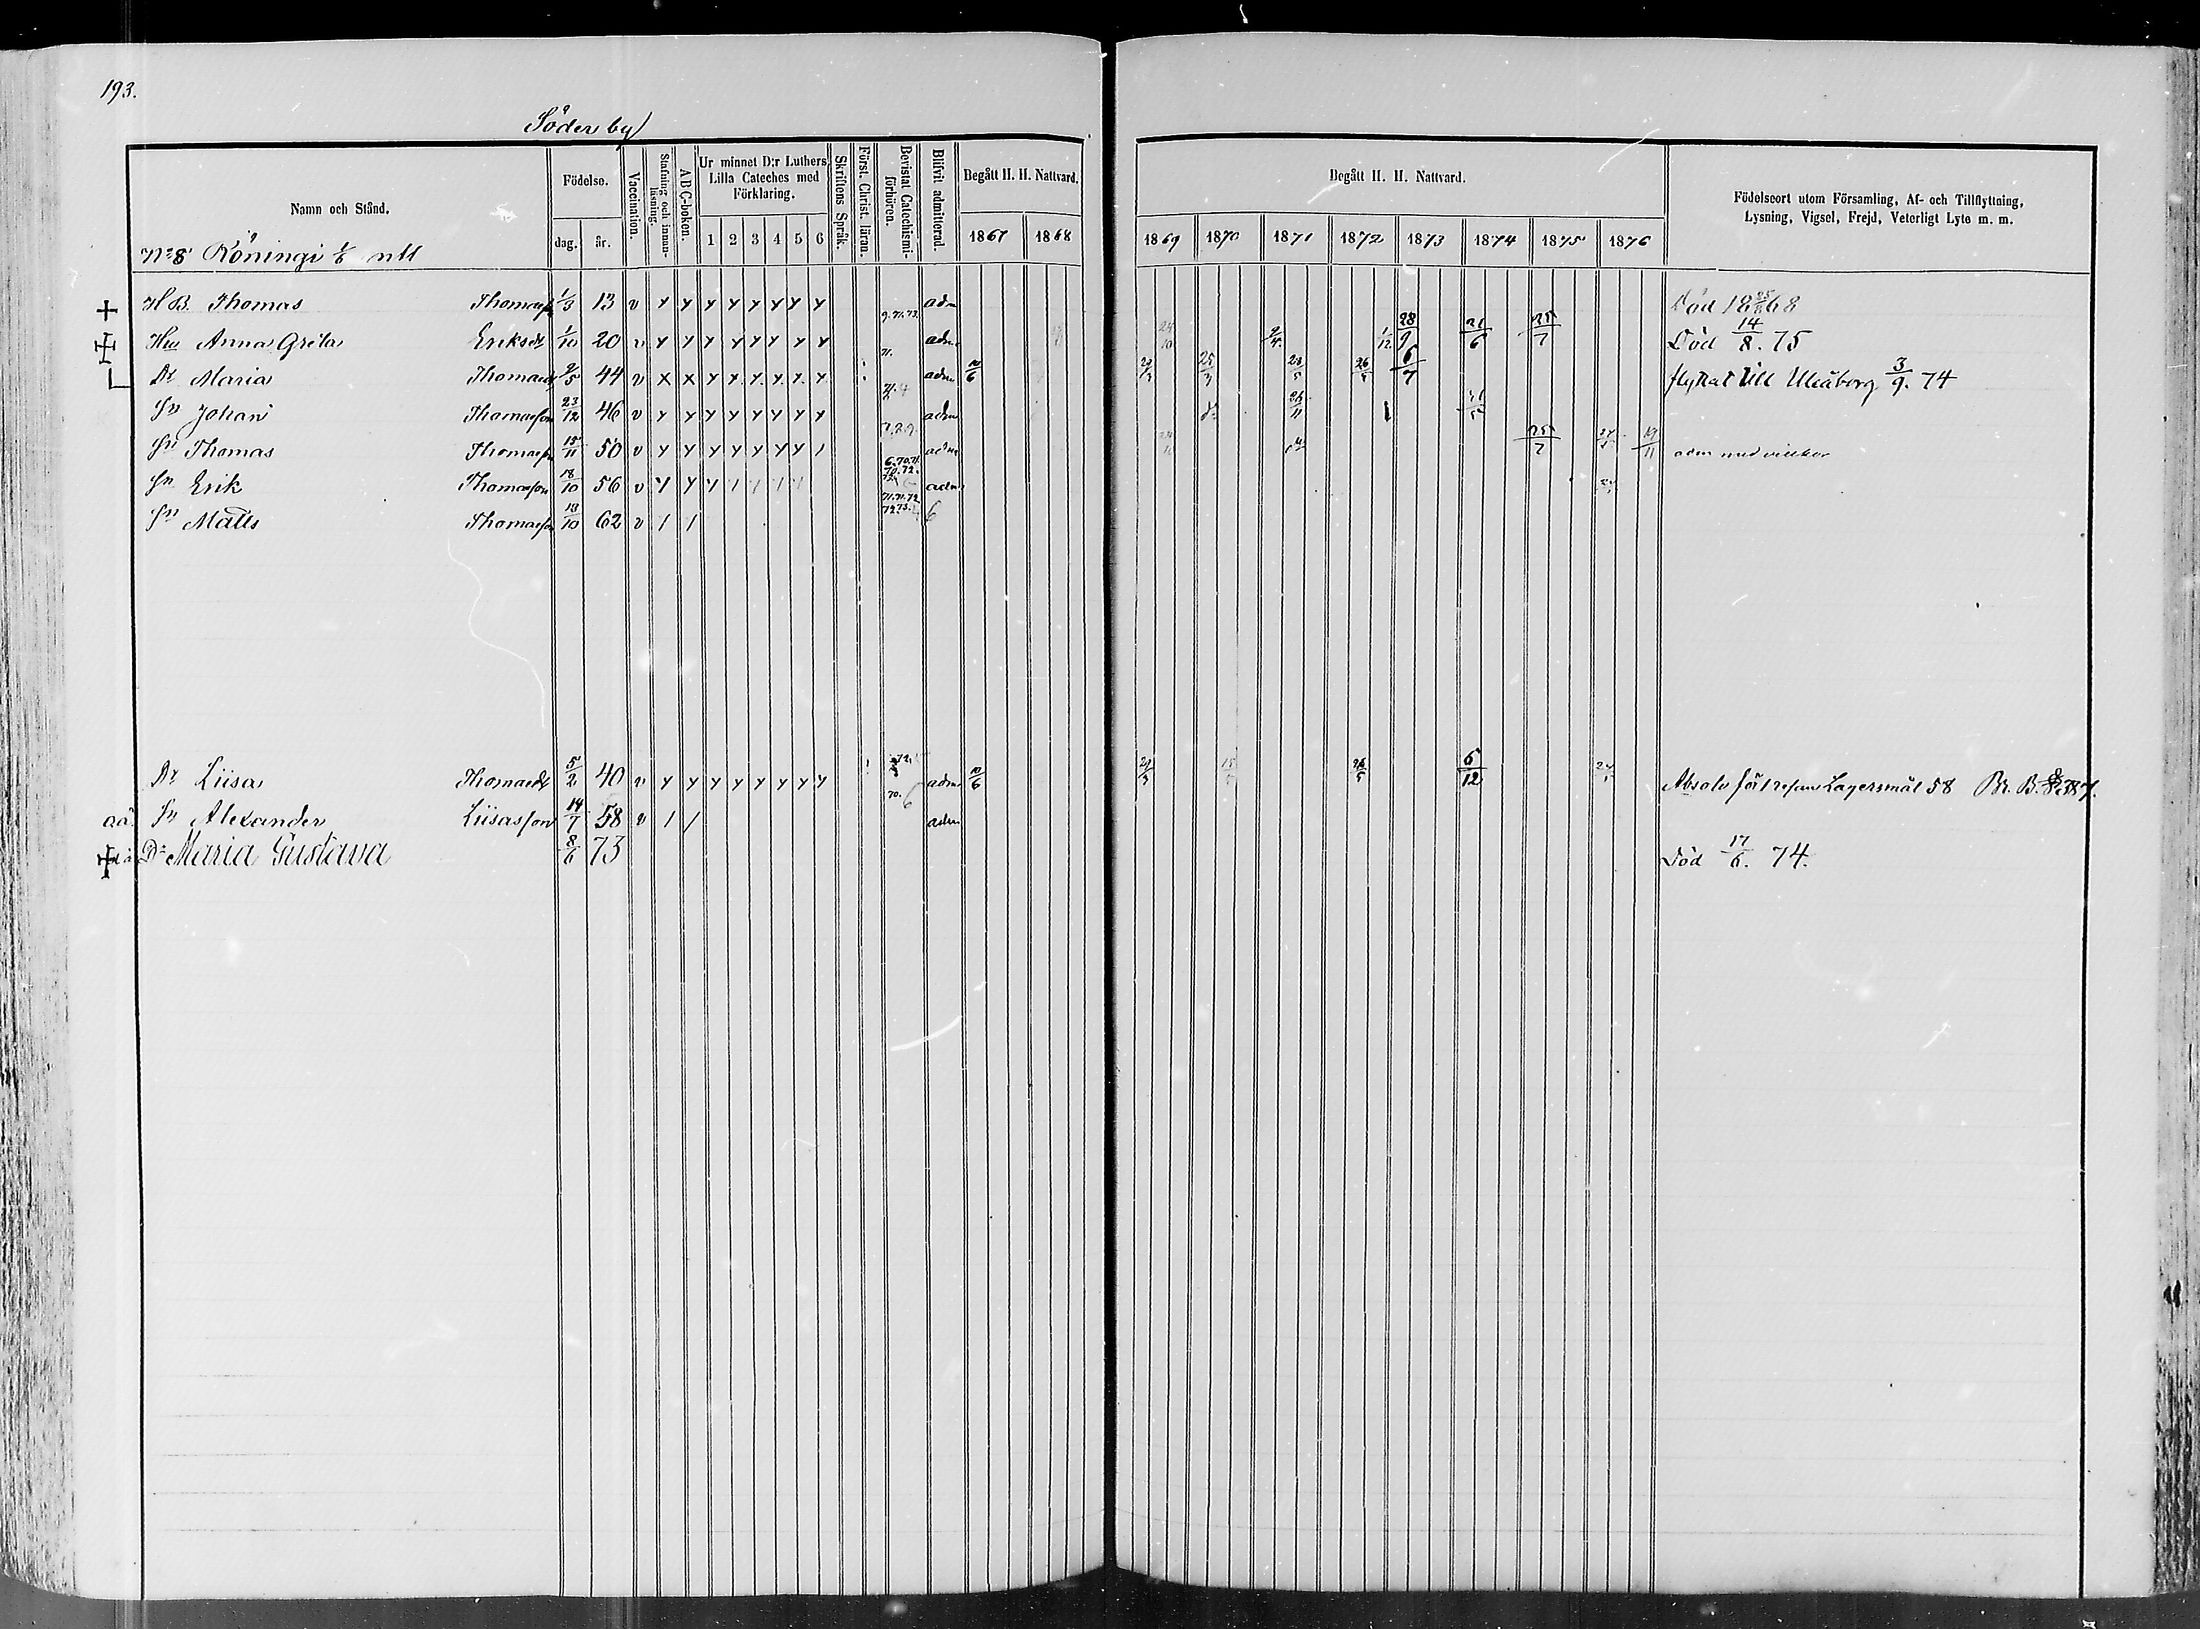 193.
Söderby
Namn och Stånd.
Födelse.
dag. år.
Vaccination.
Stafning och innanläsning.
ABC-boken.
Ur minnet D:r Luthers Lilla Cateches med Förklaring.
1 2 3 4 5 6
Skriftens Språk.
Först. Christ. läran.
Bevistat Catechismiförhören.
Blifvit admitterad.
Begått H. H. Nattvard.
1867 1868
Begått H. H. Nattvard.
1869 1870 1871 1872 1873 1874 1875 1876
Födelseort utom Församling, Af- och Tillflyttning, Lysning, Vigsel, Frejd, Veterligt Lyte m. m.
N:o 8 Köningi
H B. Thomas Thomasson 1/3 13 v y y y y y y y y adm Död 18 25/8 68
Hu Anna Greta Eriksdr 1/10 20 v y y y y y y y y adm 28/9 21/6 25/7 Död 14/8. 75
Dr Maria Thomasdr 9/5 44 v x x y y y y y y adm 10/6 25/3 28/5 26/5 6/7 flyttat till Uleåborg 3/9. 74
Sn Johan Thomasson 23/12 46 v y y y y y y y y adm
Sn Thomas Thomasson 15/11 50 v y y y y y y y / adm 25/7 19/11 adm med villkor
Sn Erik Thomasson 18/10 56 v y y y / / / / adm
Sn Matts Thomasson 13/10 62 v / / 6
Dr Liisa Thomasdr 5/2 40 v y y y y y y y y adm 10/6 26/5 6/12 Absolv för 1 resan Lägersmål 58 Br. B.
aä. Sn Alexander Liisasson 14/7 58 v / / adm
Dr Maria Gustava 8/6 73 Död 17/6. 74.